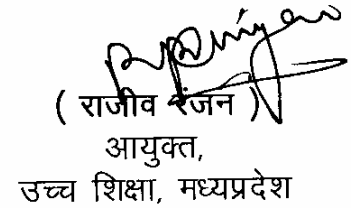 ( राजीव रंजन )
आयुक्त,
उच्च शिक्षा, मध्यप्रदेश